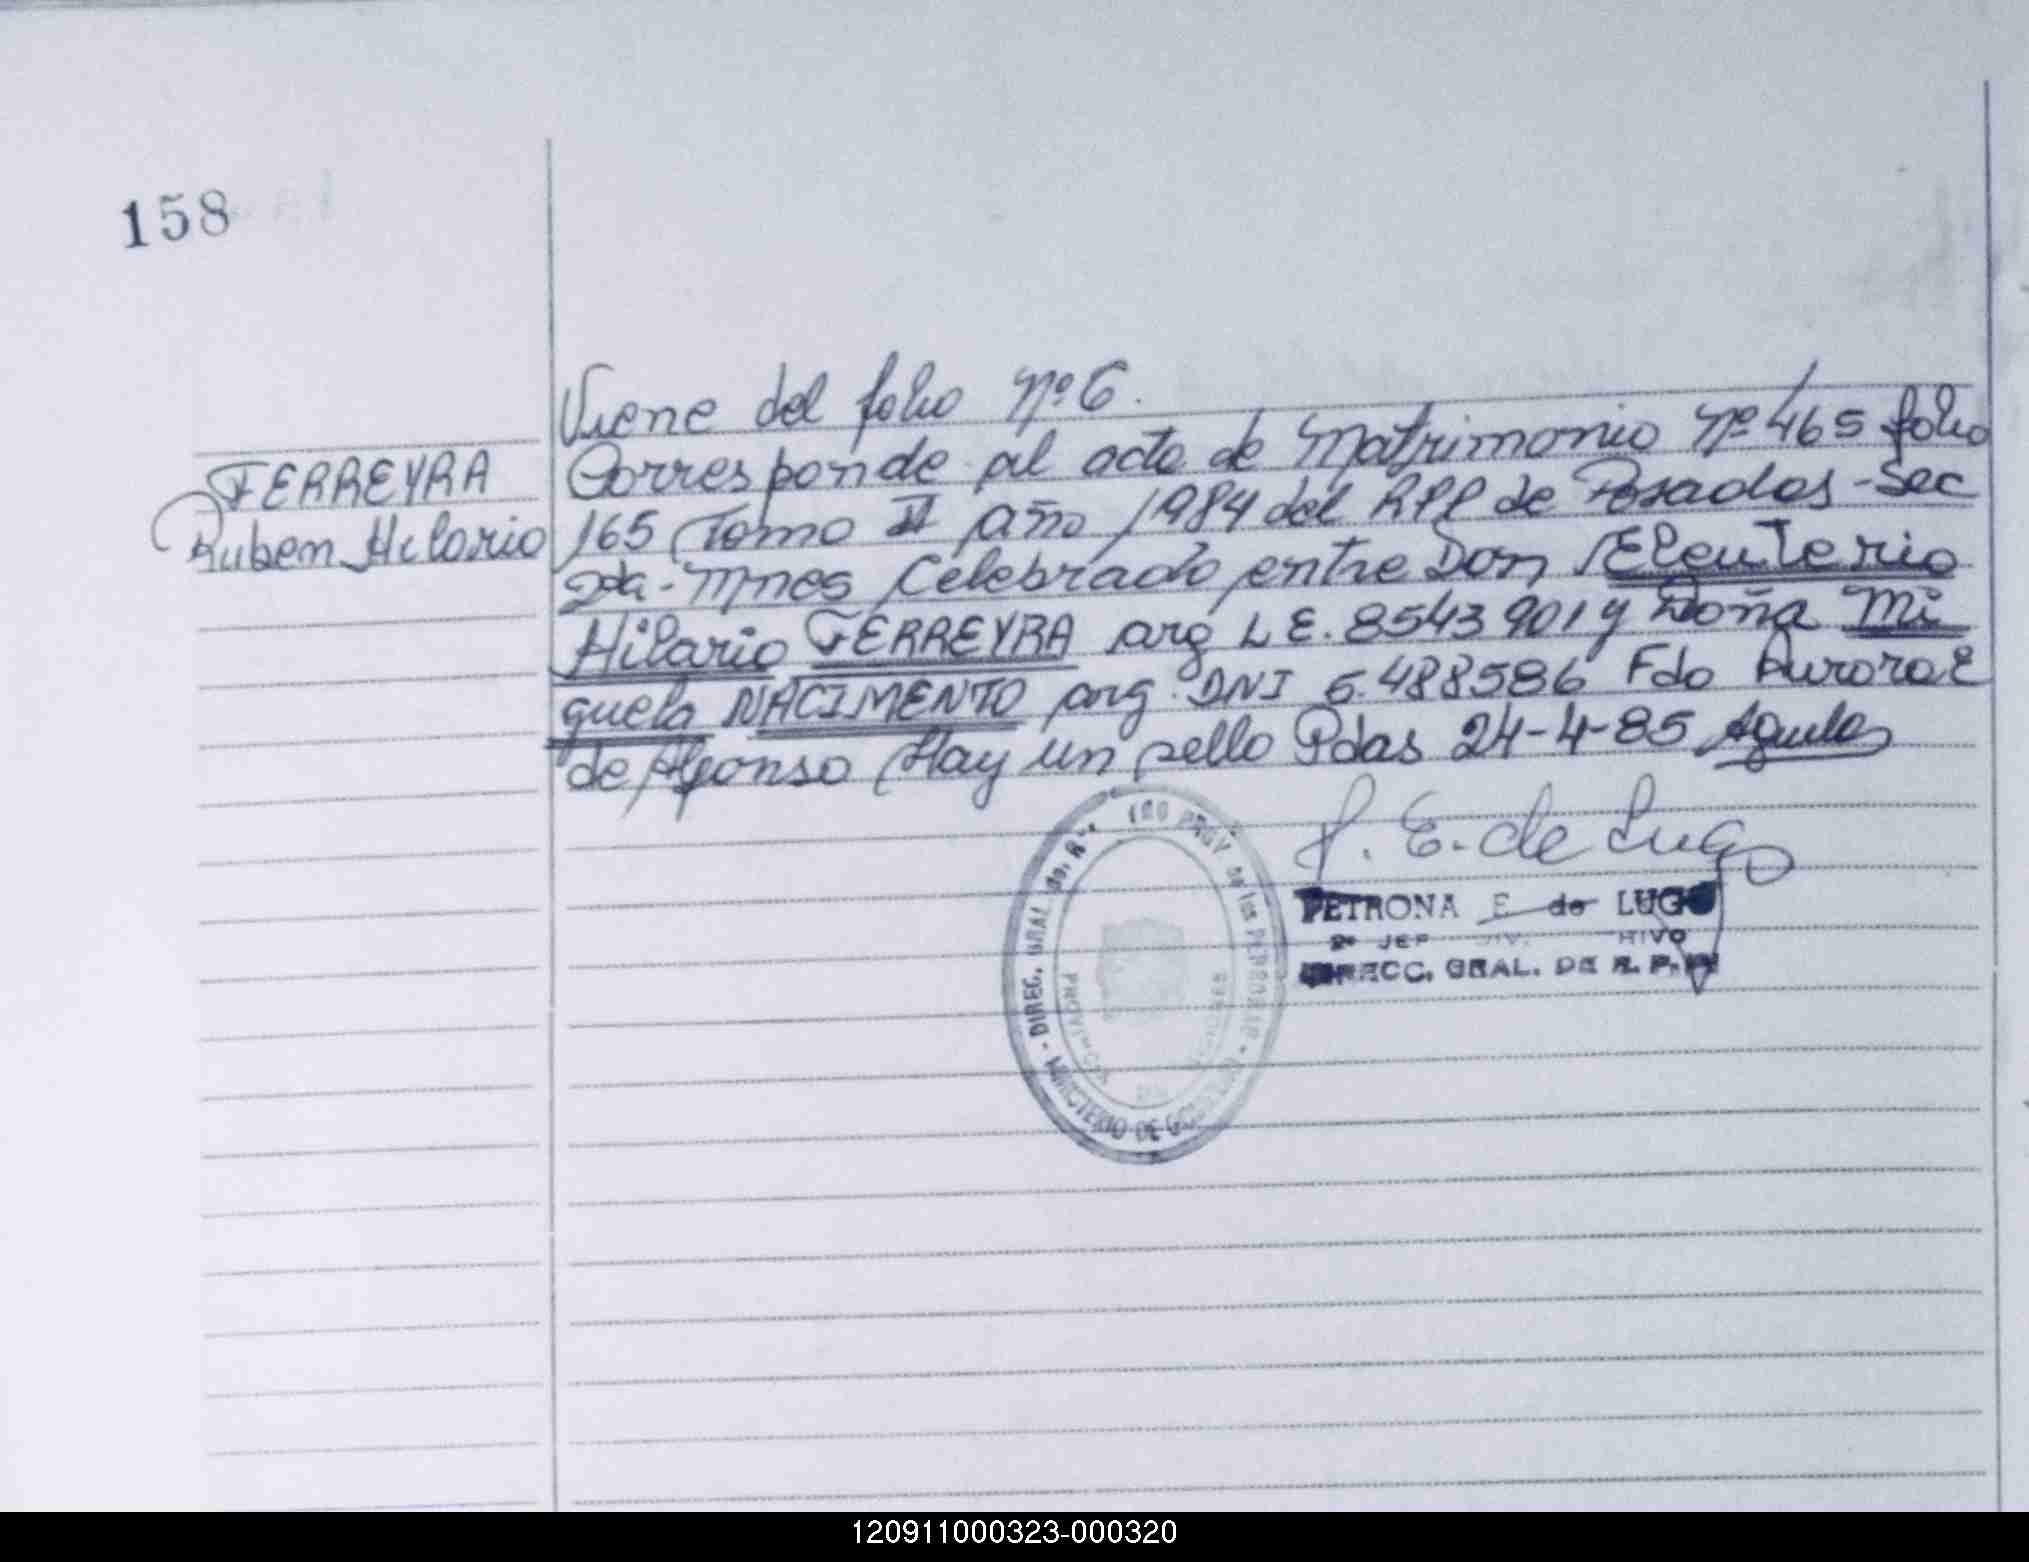 158
Viene del folio Nº 6.
FERREYRA
Ruben Hilario
Corresponde al acta de Matrimonio Nº 465 folio
165 Tomo II año 1984 del RPP de Posadas - Sec
2da - Mnes Celebrado entre Don Eleuterio
Hilario FERREYRA arg L E. 8543901 y Doña Mi
guela NACIMENTO arg. DNI 6.488586 Fdo Aurora E
de Alfonso Hay un sello Pdas 24-4-85
P. E. de Lugo
PETRONA E. de LUGO
DIRECC. GRAL. DE R. P.
- DIREC. GRAL de R. PROV. de las PERSONAS -
MINISTERIO DE GOBIERNO
PROVINCIA
MISIONES
120911000323-000320